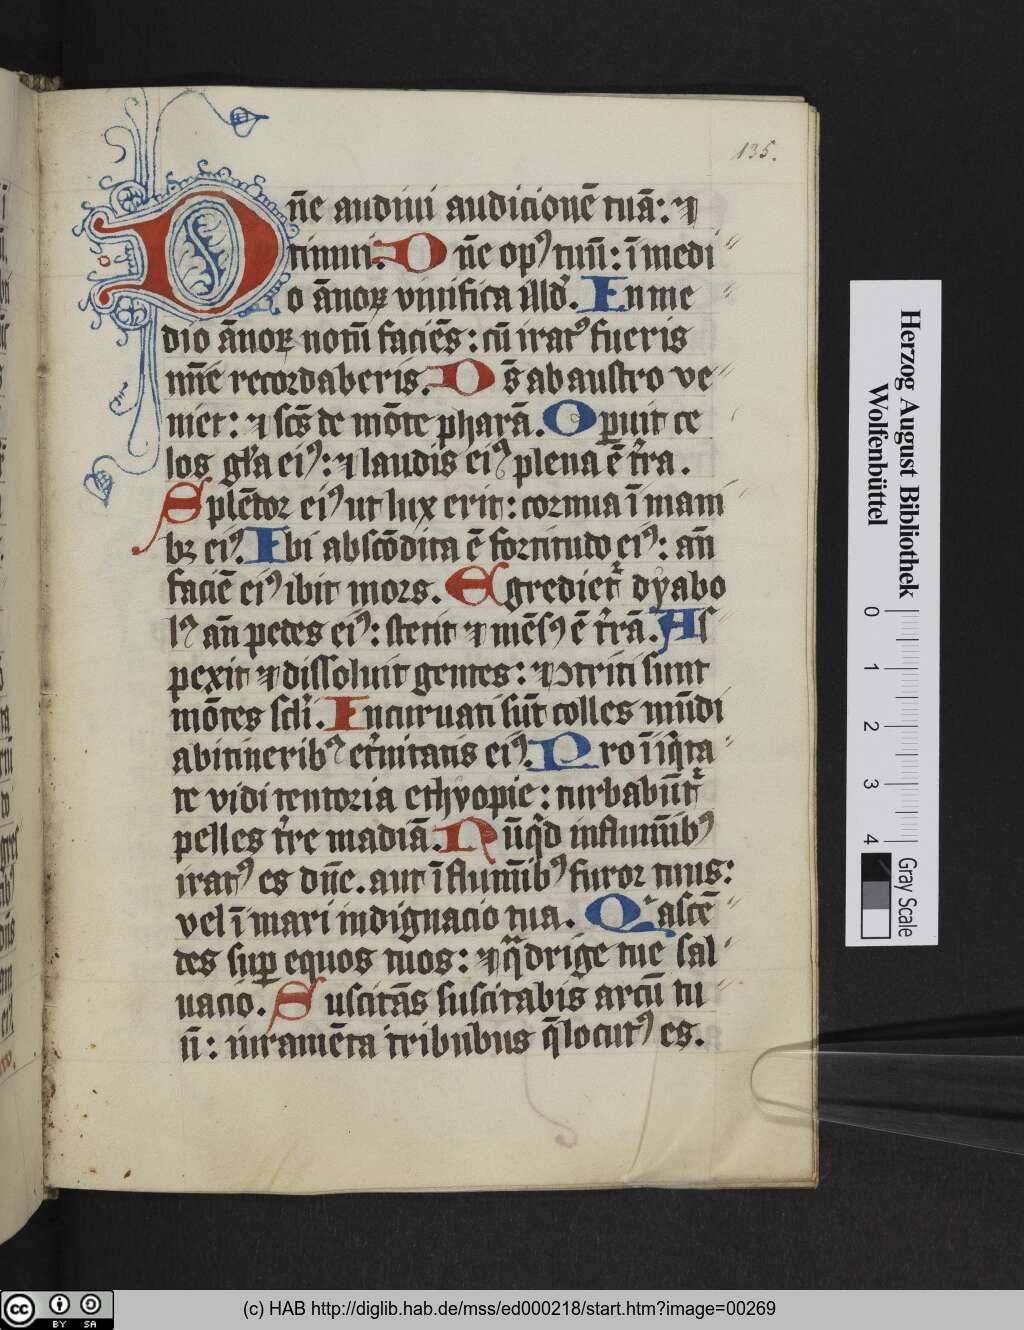 135.
Dn̄e audiui audicionē tuā: ⁊
timui. Dn̄e opꝰ tuū: ī medi
o ānoꝝ viuifica illḋ. In me
dio ānoꝝ notū faciēs: cū iratꝰ fueris
mīe recordaberis. Ds̄ ab austro ve
niet: ⁊ scs̄ de mōte pharā. Oꝑuit ce
los gl̄a eiꝰ: ⁊ laudis eiꝰ plena ē t̄ra.
Splēdor eiꝰ ut lux erit: cornua ī mani
bꝫ eiꝰ. Ibi abscōdita ē fortitudo eiꝰ: an̄
faciē eiꝰ ibit mors. Egrediet᷑ dyabo
lꝰ an̄ pedes eiꝰ: stetit ⁊ mēsꝰ ē t̄rā. As
pexit ⁊ dissoluit gentes: ⁊ ↄtriti sunt
mōtes scl̄i. Incuruati sūt colles mūdi
ab itineribꝰ et̄nitatis eiꝰ. Pro īiq̄ta
te vidi tentoria ethyopie: turbabūt᷑
pelles t̄re madiā. Nūq̄d in flumīibꝰ
iratꝰ es dn̄e. aut ī flumīibꝰ furor tuus:
vel ī mari indignacio tua. Qͥ ascē
des suꝑ equos tuos: ⁊ q̄drige tue sal
uacio. Suscitās suscitabis arcū tu
ū: iuramēta tribubus q̄ locutꝰ es.
Herzog August Bibliothek
Wolfenbüttel
0 1 2 3 4
Gray Scale
cc BY SA
(c) HAB http://diglib.hab.de/mss/ed000218/start.htm?image=00269